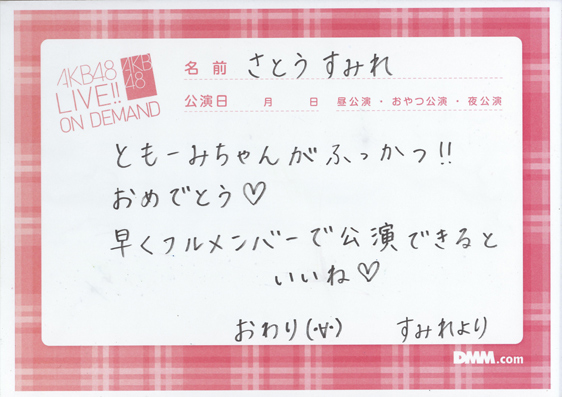 AKB48
LIVE!!
ON DEMAND
AKB
48
名前 さとうすみれ
公演日 月 日 昼公演・おやつ公演・夜公演
ともーみちゃんがふっかつ!!
おめでとう♡
早くフルメンバーで公演できると
いいね♡
おわり(・∀・) すみれより
DMM.com